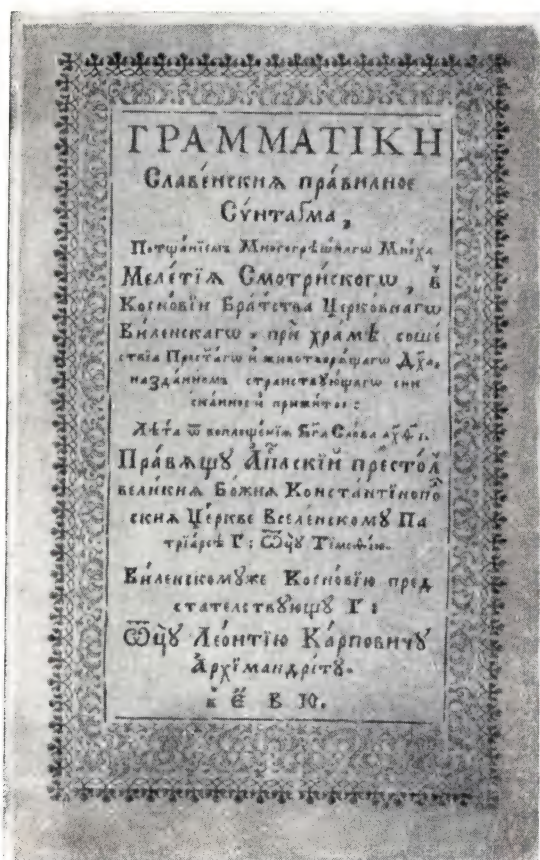 ГРАММАТІКИ
Славе́нскиѧ пра́вилное
Сѵ́нтаґма,
Потщанїемъ Многогрѣшнагѡ Мниха
Меле́тїѧ Смотри́скогѡ, в̾
Коено́вїи Братства Церко́внагѡ
Виленскагѡ, прѝ хра́мѣ соше
ствїа Прест҃агѡ и҆ животворѧщагѡ Дх҃а,
назда́нномъ странствꙋющагѡ
сни́сканное и҆ прижи́тое:
Лѣ́та ѿ воплоще́нїѧ Бг҃а Сло́ва ҂ахѳ҃і.
Пра́вѧщꙋ Ап҃лскїй пр҇есто́л
вели́киѧ Бо́жїѧ Константїнопо
скиѧ Це́ркве Вселе́нскомꙋ Па
трїа́рсѣ Г: Ѿцꙋ̀ Тїмоѳе́ю.
Ви́ленскомꙋже Коено́вїю пред
ста́телствꙋющꙋ Г:
Ѿцꙋ̀ Лео́нтїю Ка́рповичꙋ
А҆рхїмандрі́тꙋ.